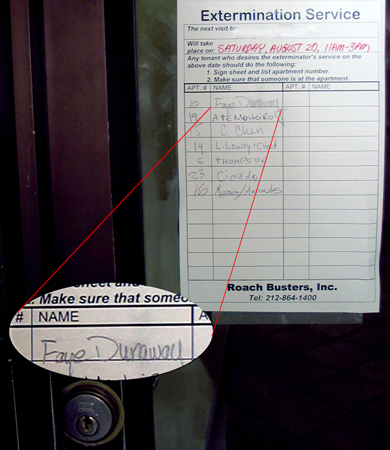 Extermination Service
The next visit to:
Will take place on: SATURDAY, AUGUST 20, 11AM-3PM
Any tenant who desires the exterminator's service on the above date should do the following:
1. Sign sheet and list apartment number.
2. Make sure that someone is at the apartment.
APT. # NAME APT. # NAME
10 Faye Dunaway
19 A+E Monteiro
5 C Chen
14 L. Lowry
6 THOMPSON
23
16
Roach Busters, Inc.
Tel: 212-864-1400
sheet and
. Make sure that someo
# NAME A
Faye Dunaway